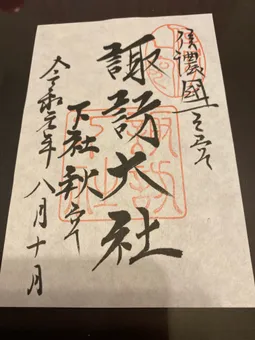 信濃國一之宮
諏訪大社
下社秋宮
令和元年八月十日